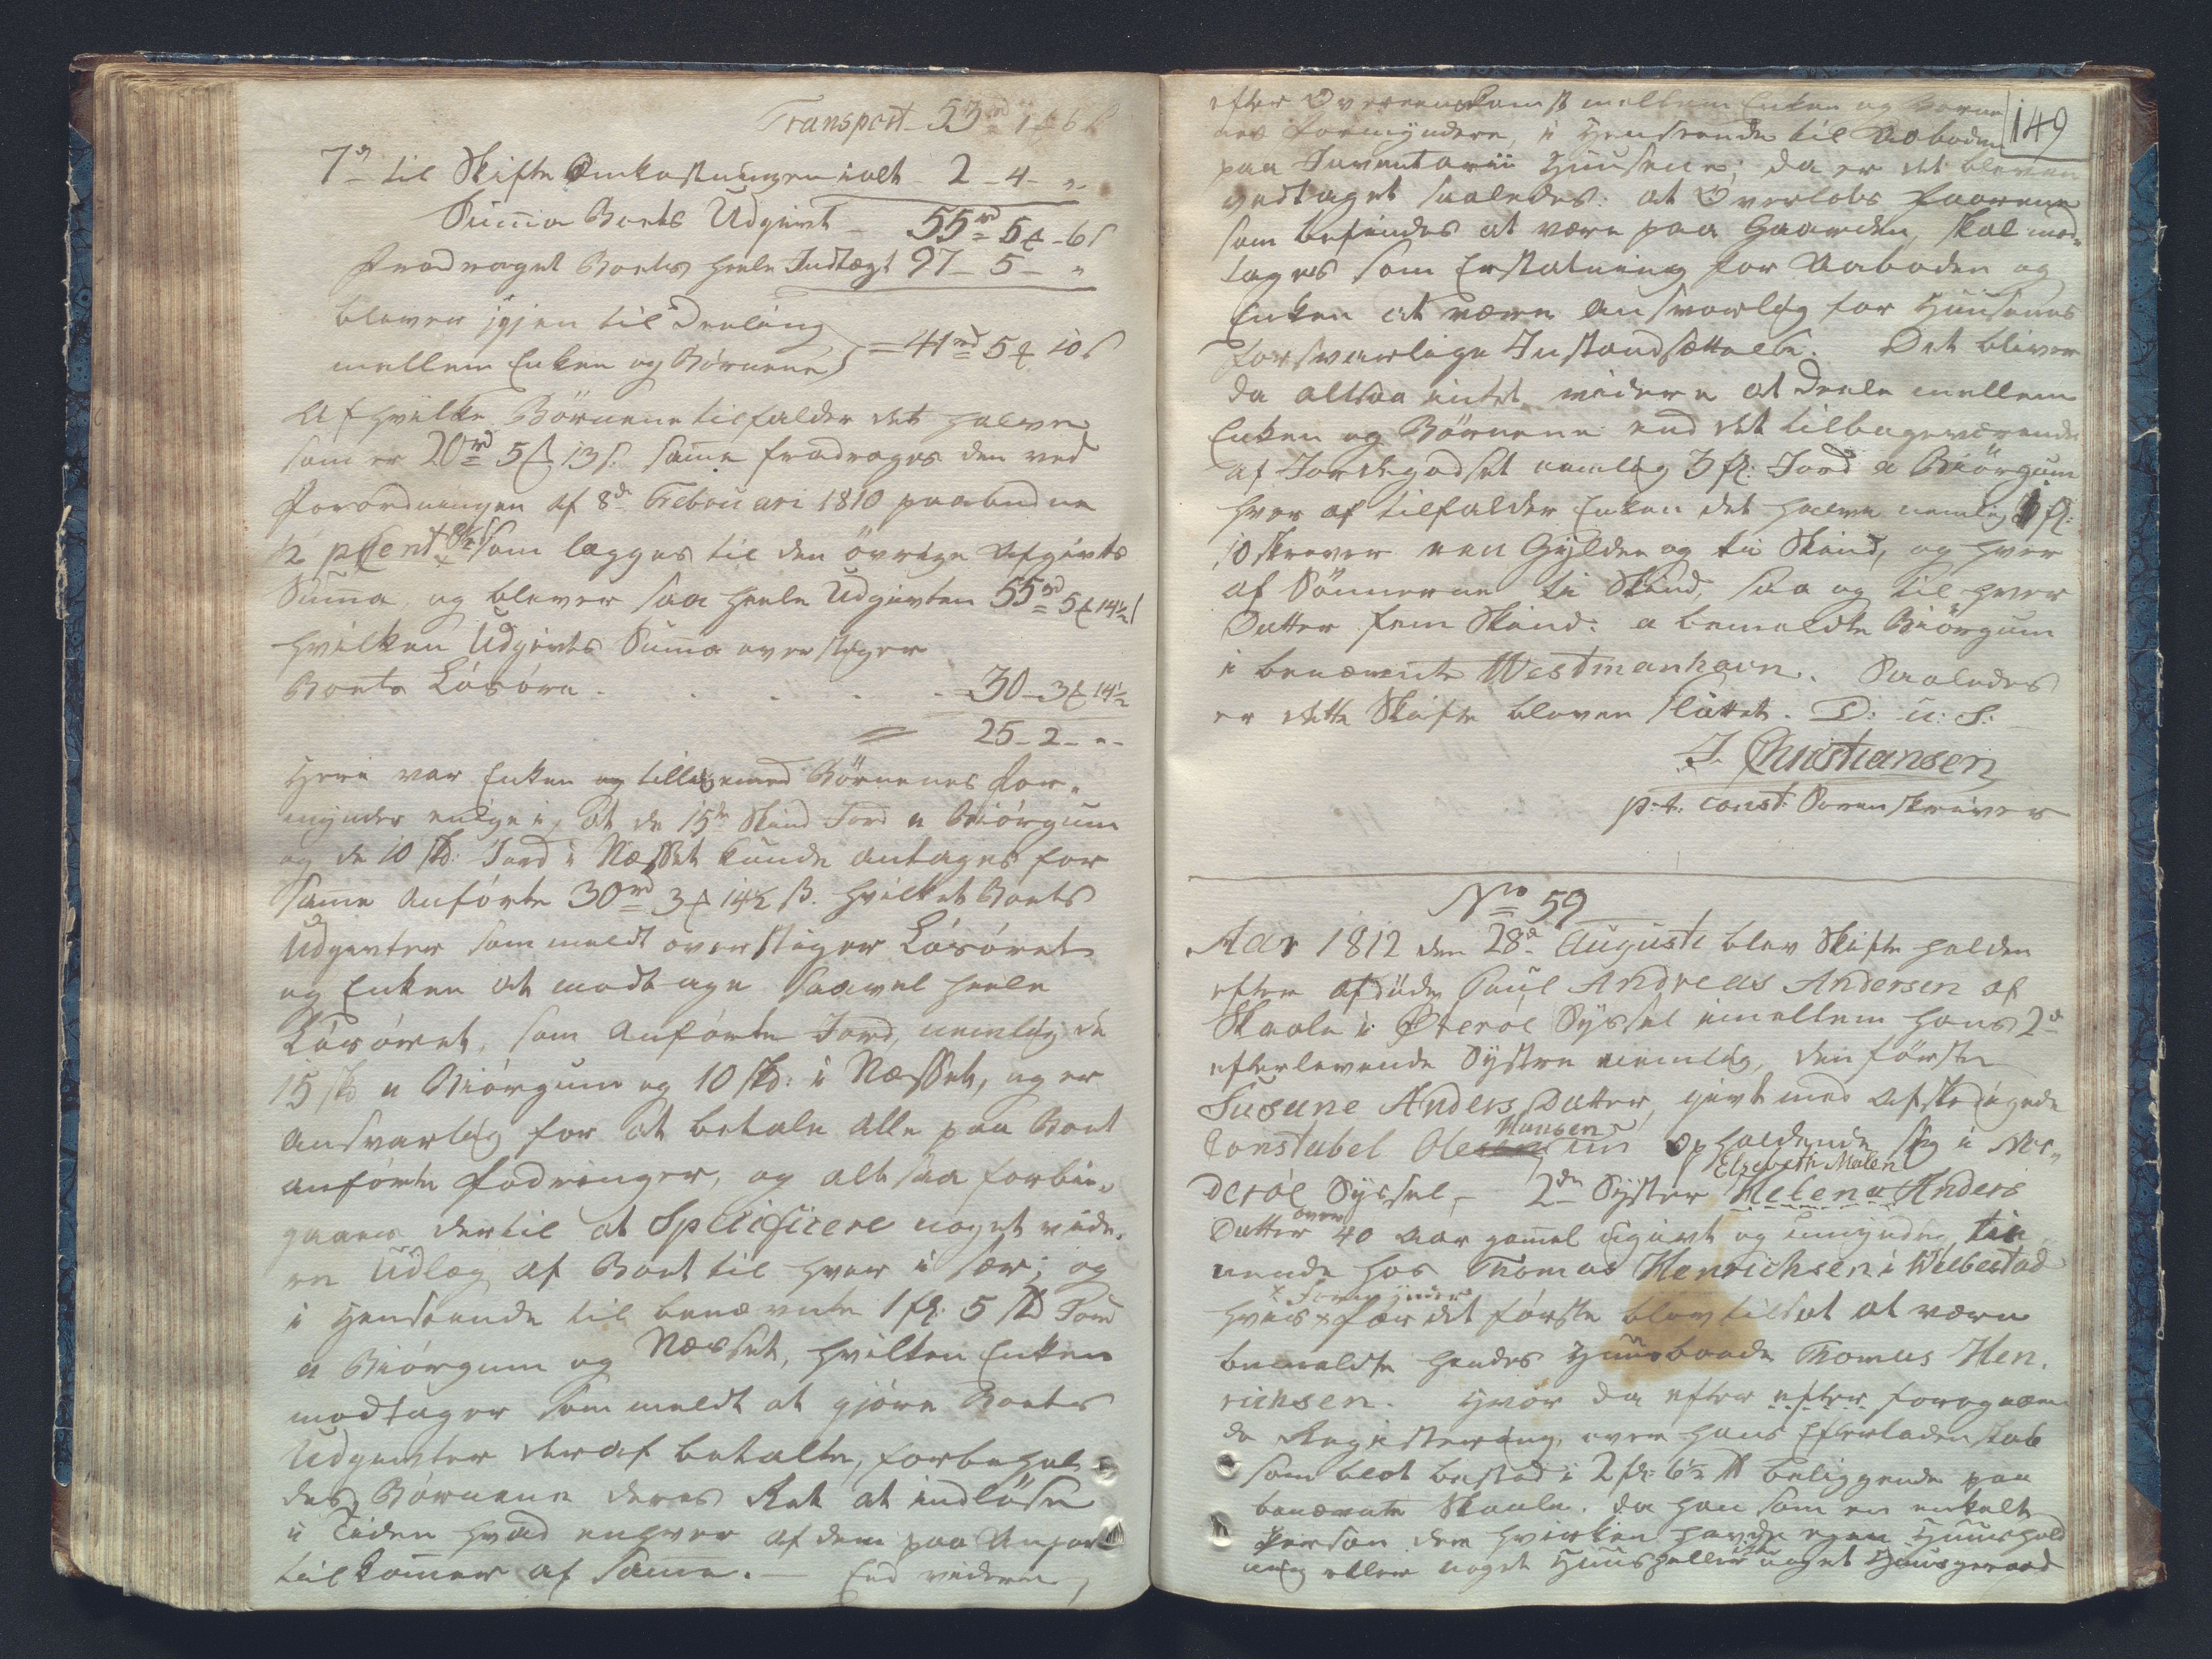 Transport 53rd 1 ₻ 6 s
7de til Skifte Omkostningen ialt 2 - 4 - "
Suma Boets Udgivt - 55rd 5 ₻ - 6 s
Fradraget Boets heele Indtægt 97 - 5 - "
bliver igjen til Deeling
mellem Enken og Börnene = 41rd 5 ₻ 10 s
Af hvilke Börnene tilfalder det halve
som er 20rd 5 ₻ 13 s. Same fradrages den ved
Forordningen af 8de Februari 1810 paabudne
½ pCent 8½ s som lægges til den övrige Udgivts
Suma, og bliver saa heele Udgivten 55rd 5 ₻ 14½ s
hvilken Udgivts Suma overstiger
Boets Lösöre . . . . . 30 - 3 ₻ 14½
= 25 - 2 - " -
Heri var Enken og tilligemed Börnenes For-
mynder enige i, at de 15ten Skind Jord a Biörgum
og de 10 skd: Jord i Næsset kunde antages for
same anförte 30rd 3 ₻ 14½ s. hvilket Boets
Udgivter som meldt overstiger Lösöret
og Enken at modtage saavel heele
Lösöret, som anförte Jord, nemlig de
15 skd a Biörgum og 10 skd: i Næsset, og er
ansvarlig for at betale alle paa Boet
anförte Fodringer, og altsaa forbi-
gaaes dertil at Spesificere noget vide-
re Udlæg af Boet til hver i sær; og
i Henseende til benævnte 1 fl: 5 skd Jord
a Biörgum og Næsset, hvilken Enken
modtager som meldt at gjöre Boets
Udgivter deraf betalte, forbehol-
des Börnene deres Ret at indlöse
i Tiden hvad enhver af dem paa Anpart
tilkomer af Same. — End videre,
149
efter Overeenskomst mellem Enken og Börne
nes Formyndere, i Henseende til Aaboden
paa Inventarii Huusene; da er det bleven
vedtaget saaledes: at Overlobs Faarene
som befindes at være paa Gaarden, skal mod-
tages som Erstatning for Aaboden og
Enken at være Ansvarlig for Huusenes
forsvarlige Istandsættelse. Det bliver
da altsaa intet videre at deele mellem
Enken og Börnene end det tilbageværende
af Jordegodset nemlig 3 fl: Jord a Biörgum
hver af tilfalder Enken det halve nemlig 1 fl:
10 skriver een Gylden og ti Skind, og hver
af Sönnerne ti Skind, saa og til hver
Datter fem Skind: a bemeldte Biörgum
i benævnte Westmanhavn. Saaledes
er dette Skifte bleven sluttet. D: u: s:
J. Christiansen
p: t. const: Sorenskriver
No 59
Aar 1812 den 28de Augusti blev Skifte holden
efter afdöde Paul Andreas Andersen af
Skaale i Österöe Syssel imellem hans 2de
efterlevende Systre nemlig, den förste
Susane Anders Datter, givt med Afskedigede
Hansen
Constabel Ole nu opholdende sig i Nor-
Elsebeth Malen
deröe Syssel, - 2den Syster Helena Anders
over
Datter 40 Aar gamel ugivt og umyndig, tie-
nende hos Thomas Henrichsen i Welbestad
x Formynder
hvis x for det förste blev tilsat at være
bemeldte hendes Huusbonde Thomas Hen-
richsen. Hvor da efter efter foregaaen
de Registering, over hans Efterladenskab
som blot bestod i 2 fl: 6½ sk beliggende paa
benævnte Skaale. da han som en enkelt
Person der hverken havde egen Huushold
ning eller noget Huus heller ikke noget Huusgeraad